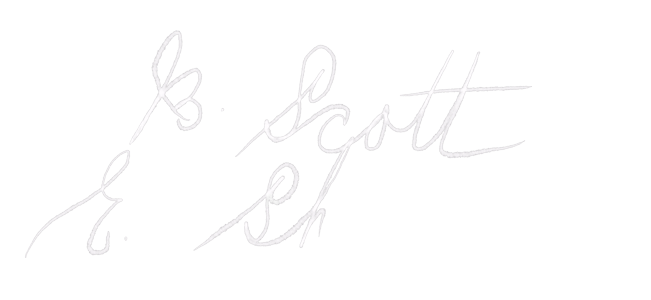 B. Scott
E. Sh